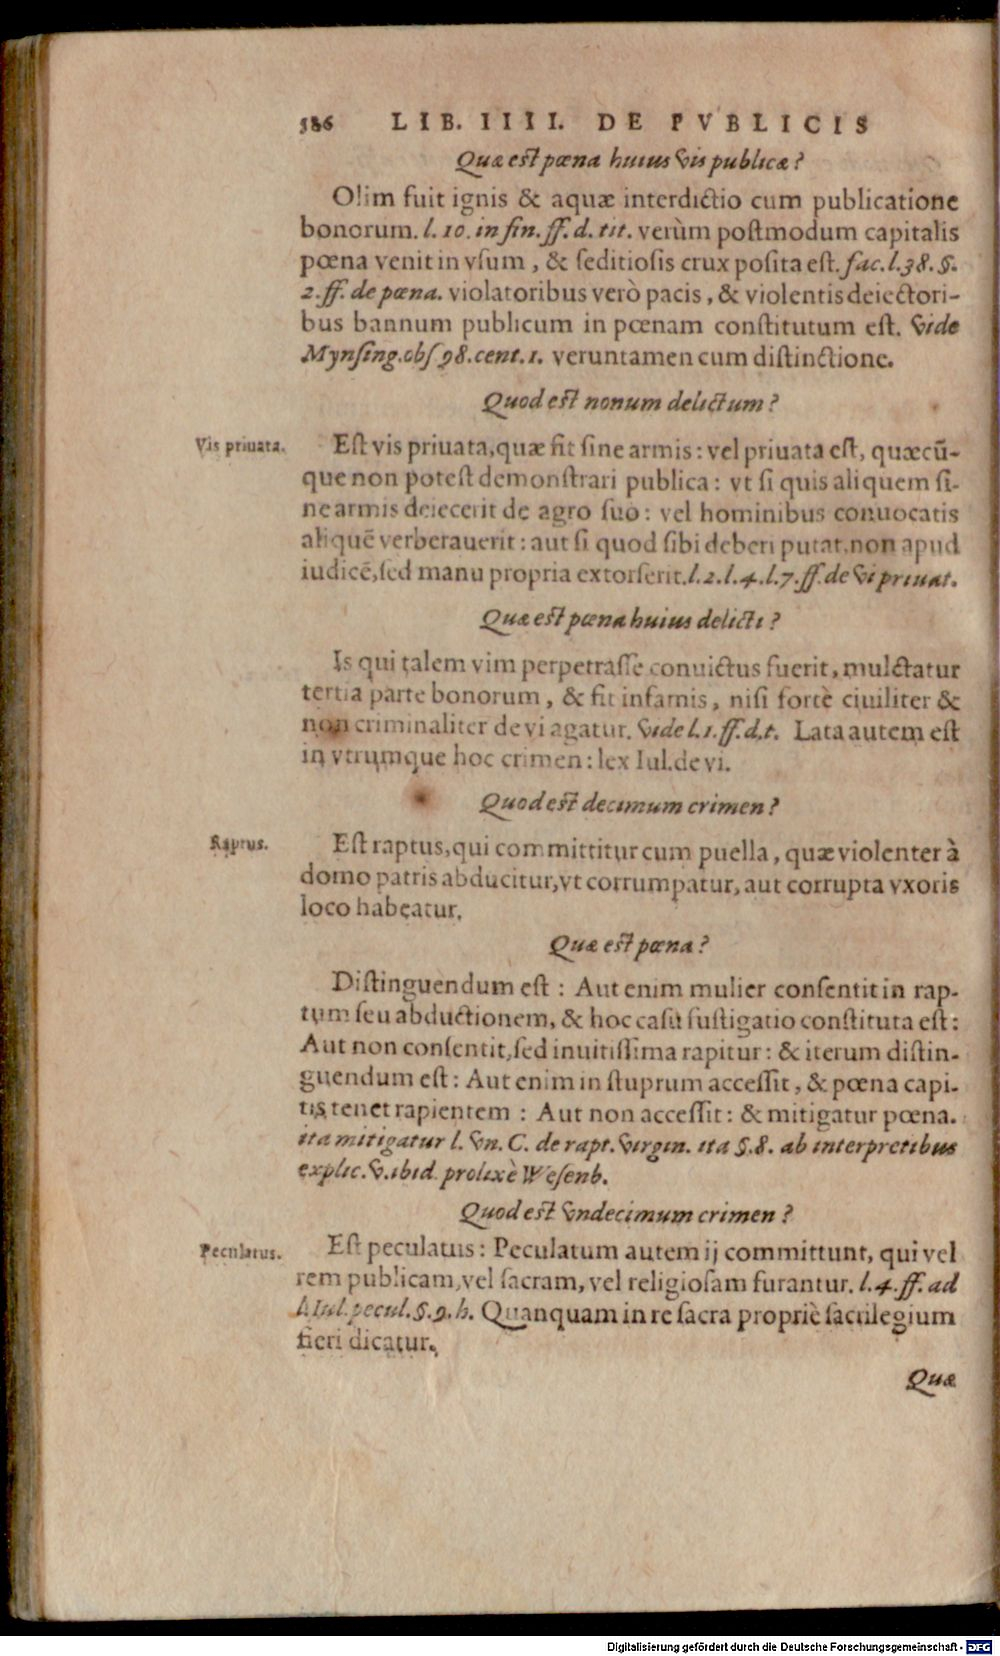 386 LIB. IIII. DE PVBLICIS
Quæ est pœna huius vis publicæ?
Olim fuit ignis & aquæ interdictio cum publicatione
bonorum. l. 10. in fin. ff. d. tit. verùm postmodum capitalis
pœna venit in vsum, & seditiosis crux posita est. fac. l. 38. §.
2. ff. de pœna. violatoribus verò pacis, & violentis deiectori-
bus bannum publicum in pœnam constitutum est. vide
Mynsing. obs 98. cent. 1. veruntamen cum distinctione.
Quod est nonum delictum?
Vis priuata.
Est vis priuata, quæ fit sine armis: vel priuata est, quæcũ-
que non potest demonstrari publica: vt si quis aliquem si-
ne armis deiecerit de agro suo: vel hominibus conuocatis
aliquẽ verberauerit: aut si quod sibi deberi putat, non apud
iudicẽ, sed manu propria extorserit. l. 2. l. 4. l. 7. ff. de vi priuat.
Quæ est pœna huius delicti?
Is qui talem vim perpetrasse conuictus fuerit, mulctatur
tertia parte bonorum, & fit infamis, nisi fortè ciuiliter &
non criminaliter de vi agatur. vide l. 1. ff. d. t. Lata autem est
in vtrumque hoc crimen: lex Iul. de vi.
Quod est decimum crimen?
Raptus.
Est raptus, qui committitur cum puella, quæ violenter à
domo patris abducitur, vt corrumpatur, aut corrupta vxoris
loco habeatur.
Quæ est pœna?
Distinguendum est: Aut enim mulier consentit in rap-
tum seu abductionem, & hoc casu fustigatio constituta est:
Aut non consentit, sed inuitissima rapitur: & iterum distin-
guendum est: Aut enim in stuprum accessit, & pœna capi-
tis tenet rapientem: Aut non accessit: & mitigatur pœna.
ita mitigatur l. vn. C. de rapt. virgin. ita §. 8. ab interpretibus
explic. v. ibid. prolixè Wesenb.
Quod est vndecimum crimen?
Peculatus.
Est peculatus: Peculatum autem ij committunt, qui vel
rem publicam, vel sacram, vel religiosam furantur. l. 4. ff. ad
l. Iul. pecul. §. 9. h. Quanquam in re sacra propriè sacrilegium
fieri dicatur.
Quæ
Digitalisierung gefördert durch die Deutsche Forschungsgemeinschaft - DFG